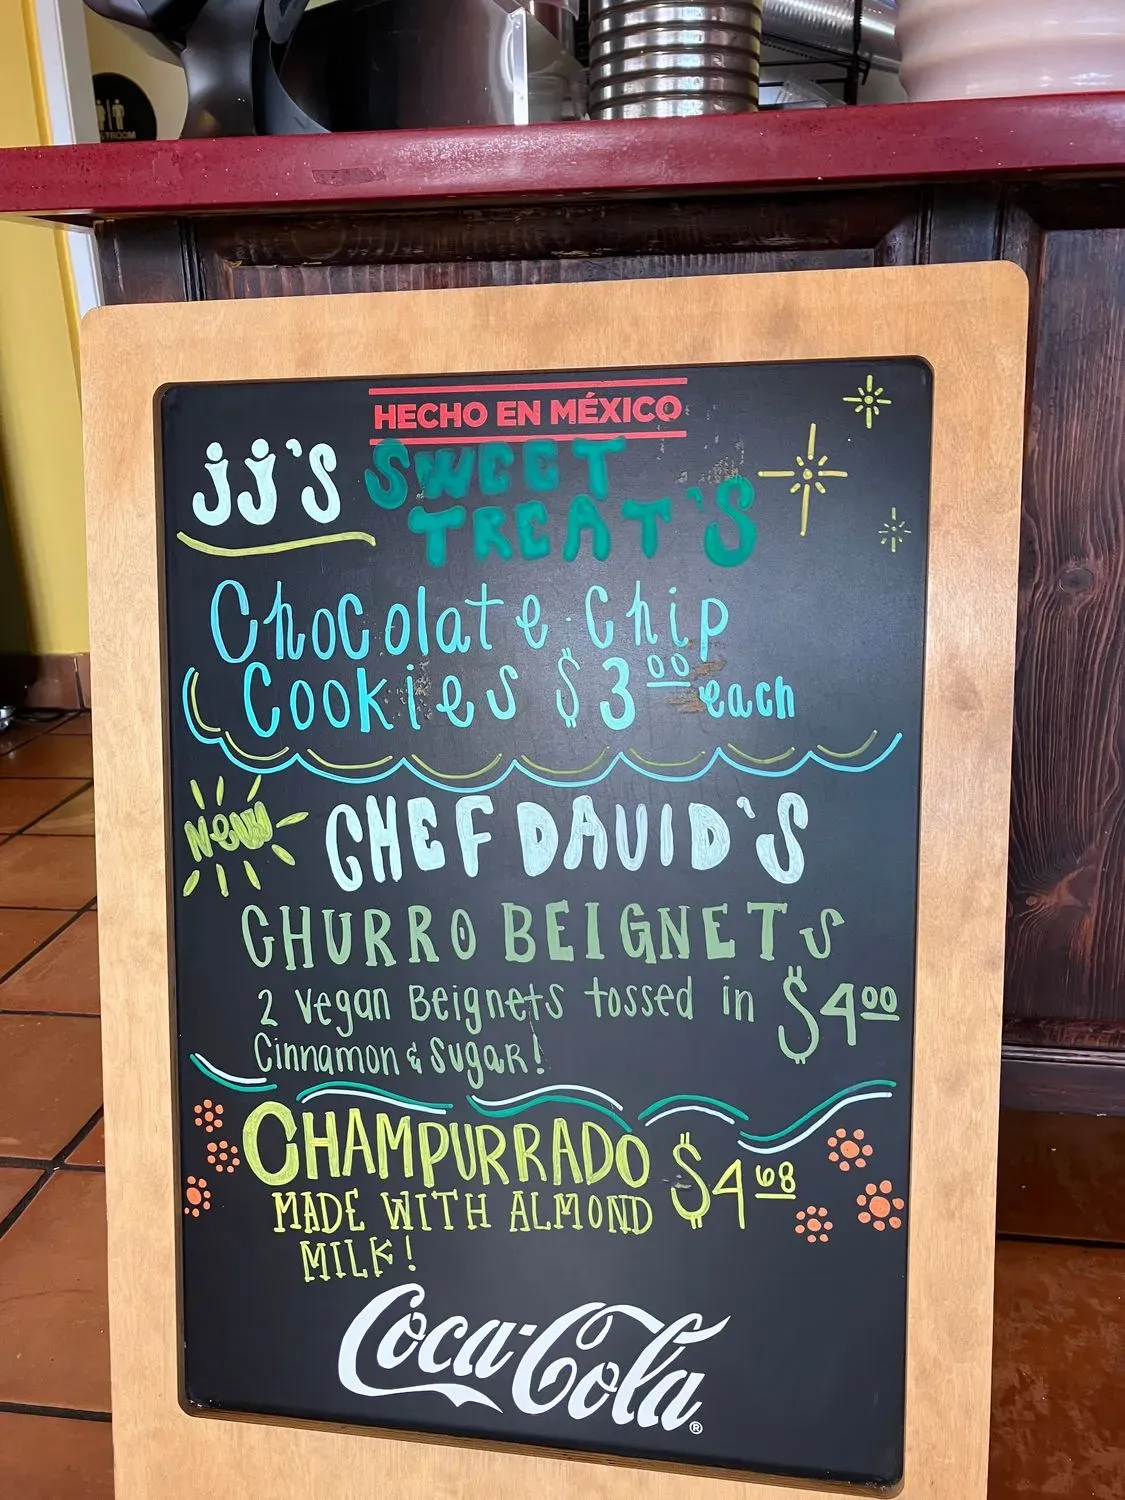 RESTROOM
HECHO EN MÉXICO
JJ'S SWEET
TREAT'S
Chocolate Chip
Cookies $3.00 each
New CHEF DAVID'S
CHURRO BEIGNETS
2 Vegan Beignets tossed in $4.00
Cinnamon & Sugar!
CHAMPURRADO $4.68
MADE WITH ALMOND
MILK!
Coca-Cola®